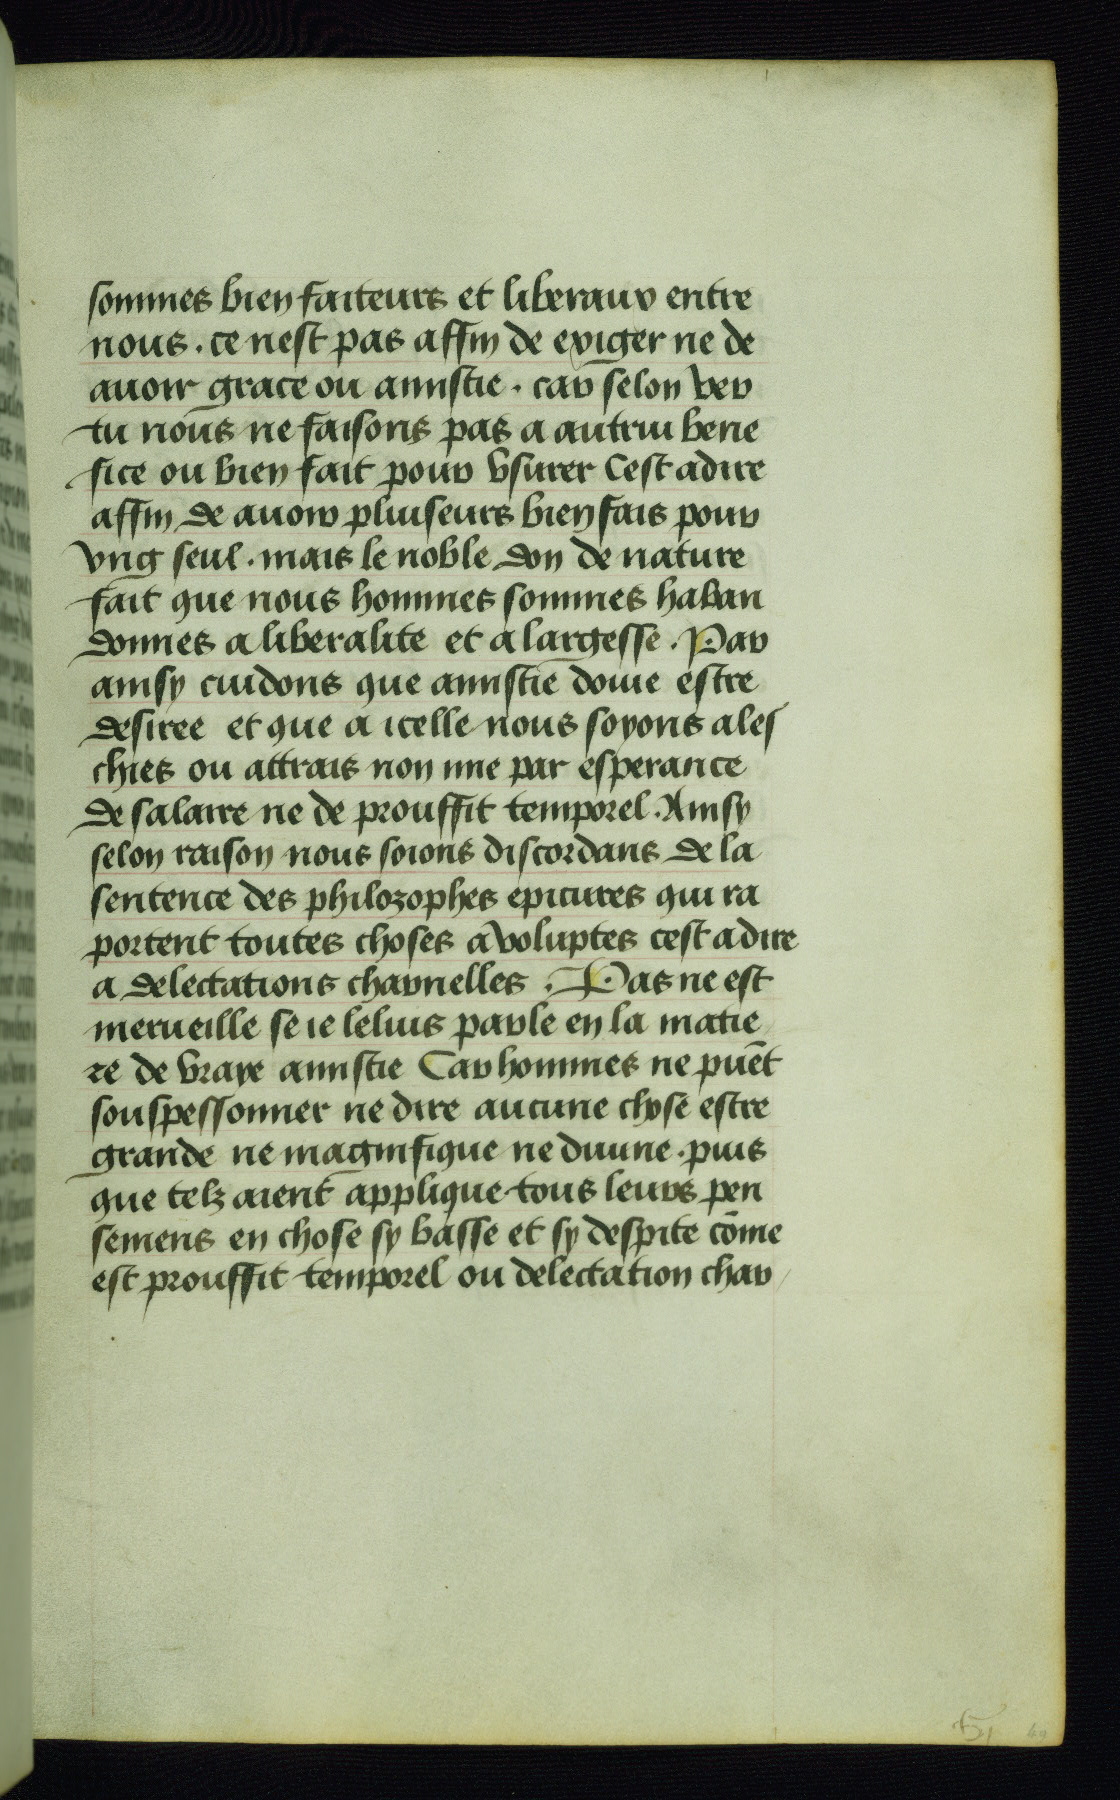 sommes bien faiteurs et liberaux entre
nous. ce nest pas affin de exiger ne de
auoir grace ou amistie. car selon ver
tu nous ne faisons pas a autrui bene
fice ou bien fait pour vsurer Cest adire
affin de auoir pluiseurs bien fais pour
vng seul. mais le noble don de nature
fait que nous hommes sommes haban
donnes a liberalite et a largesse. Par
ainsy cuidons que amistie doiue estre
desiree et que a icelle nous soyons ales
chies ou attrais non mie par esperance
de salaire ne de prouffit temporel. Ainsy
selon raison nous soions discordans de la
sentence des philozophes epicures qui ra
portent toutes choses a voluptes cest adire
a delectations charnelles. Pas ne est
merueille se ie lelius parle en la matie
re de vraye amistie Car hommes ne puēt
souspessonner ne dire aucune chose estre
grande ne magnifique ne diuine. puis
que telz aient applique tous leurs pen
semens en chose sy basse et sy despite cōme
est prouffit temporel ou delectation char